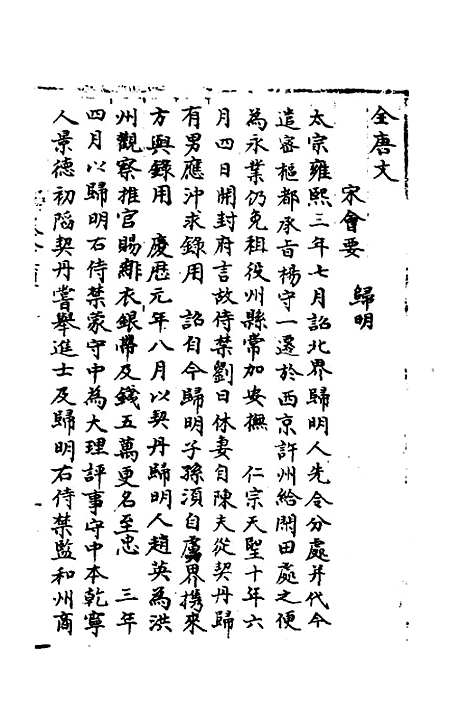 全唐文
宋會要　歸明
太宗雍熙三年七月詔北界歸明人先令分處并代今
遣密樞都承旨楊守一遷於西京許州給閑田處之便
為永業仍免租役州縣常加安撫　仁宗天聖十年六
月四日開封府言故侍禁劉日休妻自陳夫從契丹歸
有男應沖求錄用　詔自今歸明子孫須自虜界携來
方與錄用　慶曆元年八月以契丹歸明人趙英為洪
州觀察推官賜緋衣銀帶及錢五萬更名至忠　三年
四月以歸明右侍禁蒙守中為大理評事守中本乾寧
人景德初陷契丹嘗舉進士及歸明右侍禁監和州商